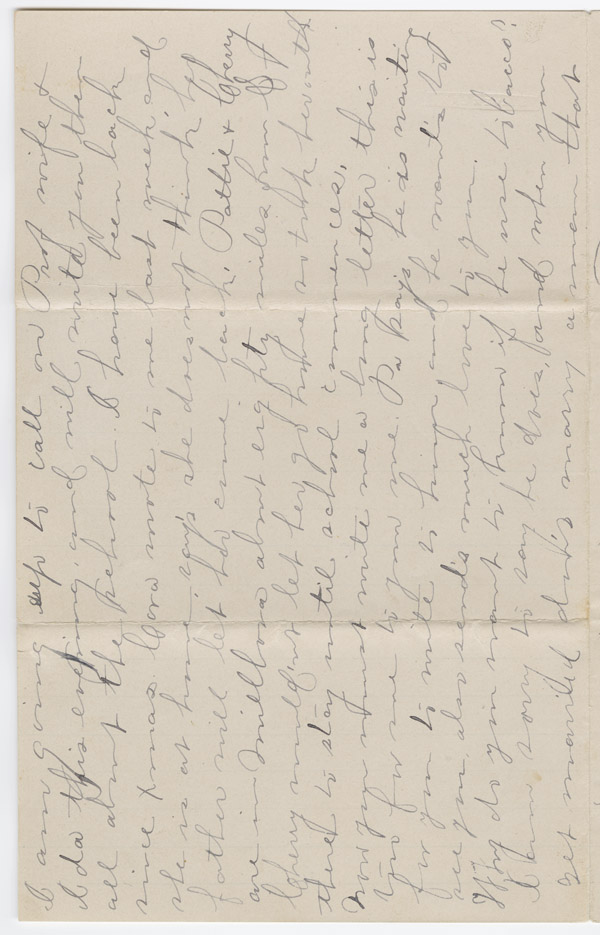 I am going up to call on Prof wife &
Ida this evening, and will write you then
all about the school. I have been back
since Xmas. Cora wrote to me last week and
she is at home, says she does not think, her
father will let her come back. Pattie & Cherry
are in Millboro about eighty miles from
Cherry would'nt let her go home so took
there to stay until school commences.
Now you must write me a long letter this is
two for me to your one. Pa says he is waiting
for you to write to him and he wants to
see you, also sends much love to you.
Why do you want to know if he use tobacco?
I am sorry to say he does, and when you
get married dont's marry a man that